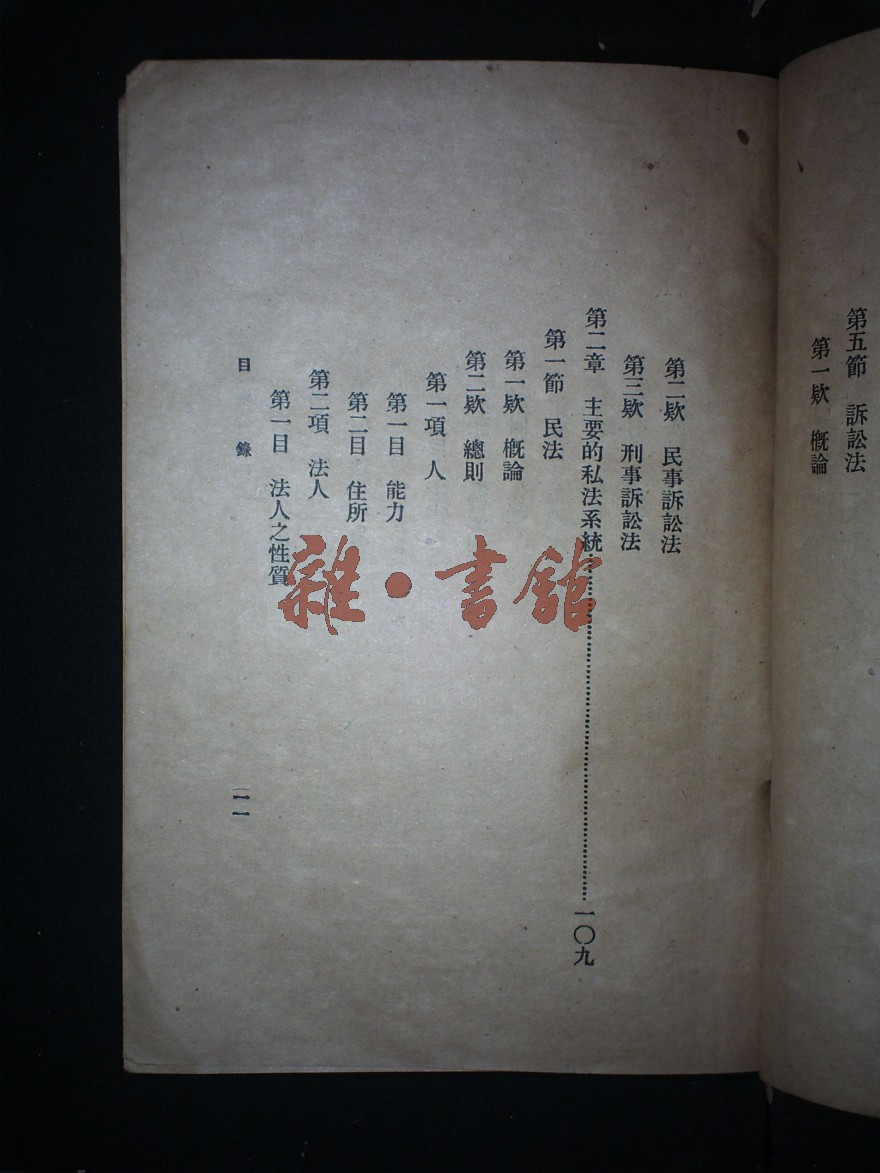 第五節　訴訟法
第一欵　概論
第二欵　民事訴訟法
第三欵　刑事訴訟法
第二章　主要的私法系統……………………一〇九
第一節　民法
第一欵　概論
第二欵　總則
第一項　人
第一目　能力
第二目　住所
第二項　法人
第一目　法人之性質
目　錄
一一
雜・書館